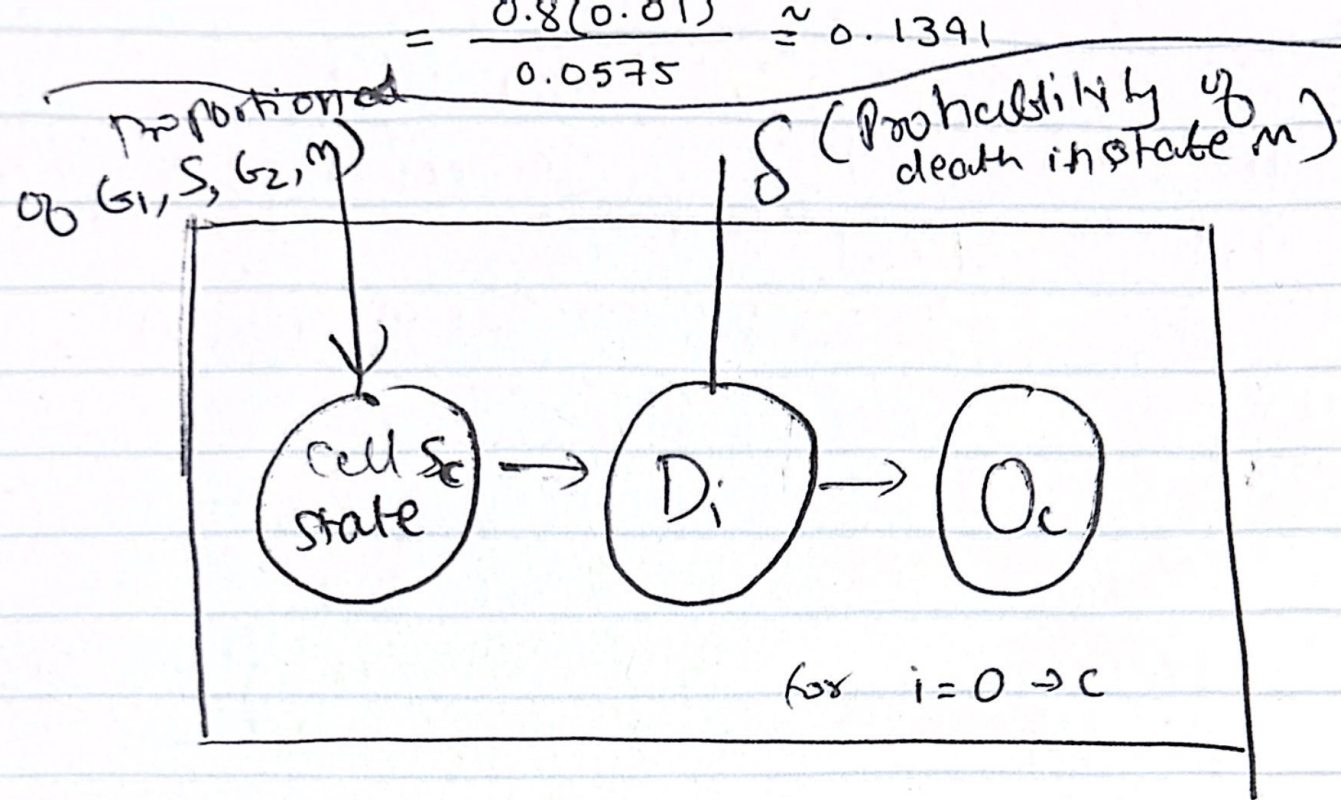 = 0.8(0.01) / 0.0575 ≅ 0.1391
proportioned
of G1, S, G2, M)
δ (Probability of
death in state M)
cell Sc
state
→
Di
→
Oc
for i = 0 → C